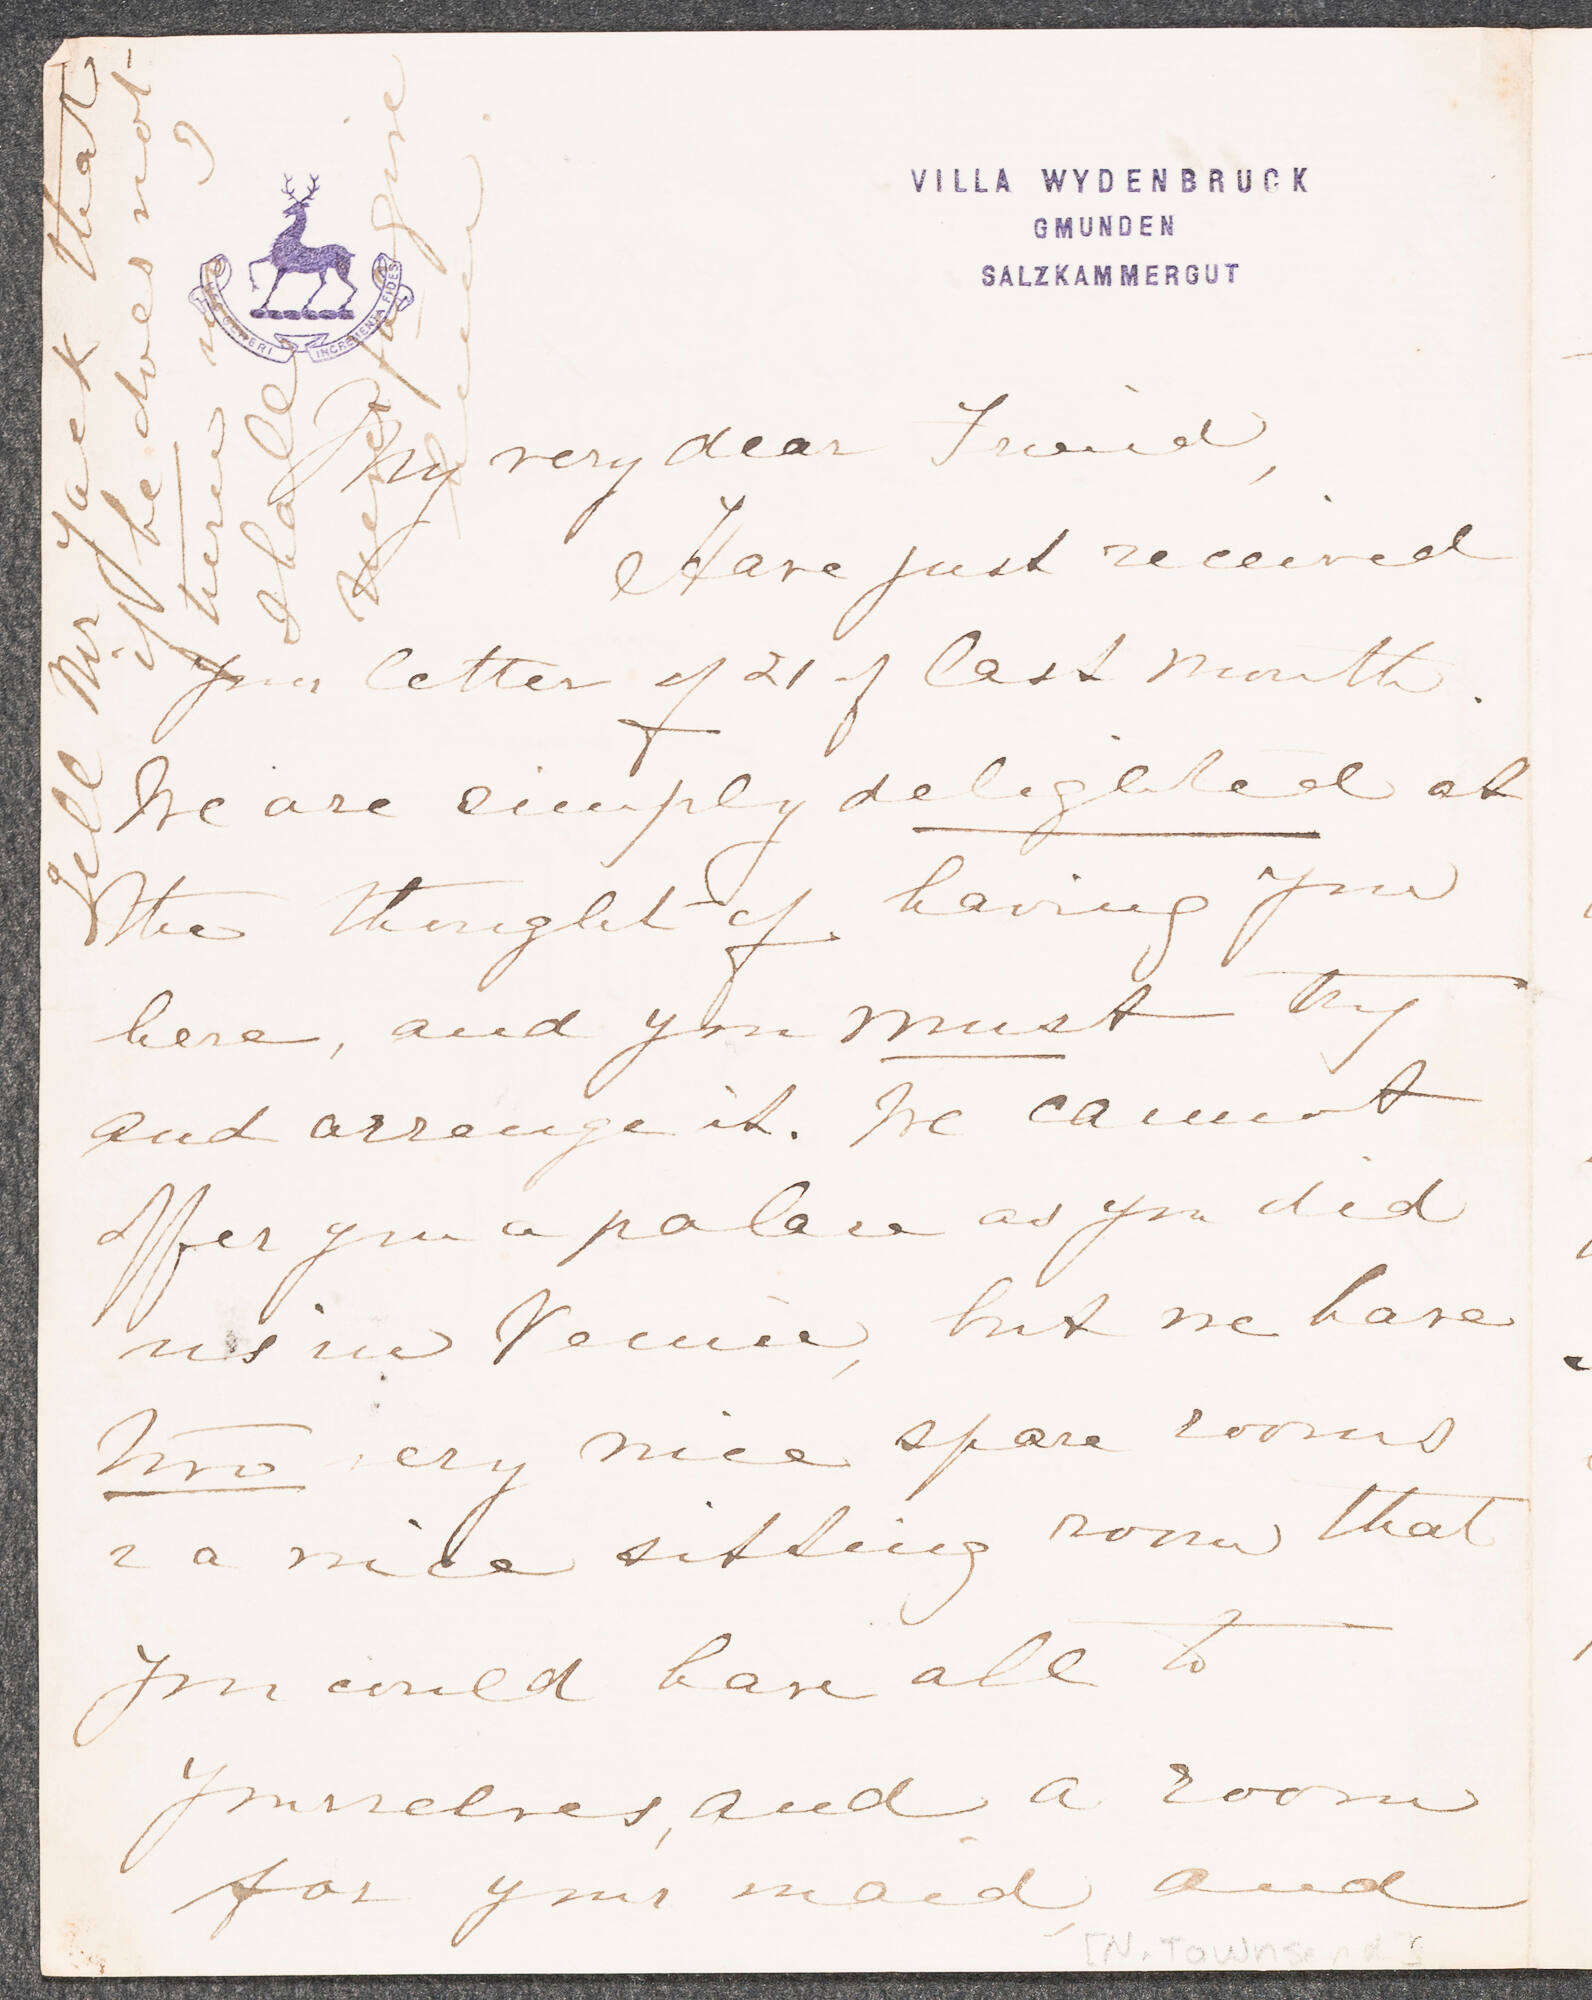 VILLA WYDENBRUCK
GMUNDEN
SALZKAMMERGUT
HÆC GENERI INCREMENTA FIDES
My very dear Friend,
Have just received
your letter of 21 of last month.
We are simply delighted at
the thought of having you
here, and you must try
and arrange it. We cannot
offer you a palace as you did
us in Venice, but we have
two very nice spare rooms
& a nice sitting room that
you could have all to
yourselves, and a room
for your maid, and
[N. Townsend]
Tell Mr Jack that
if he does not
I shall
never forgive
him.